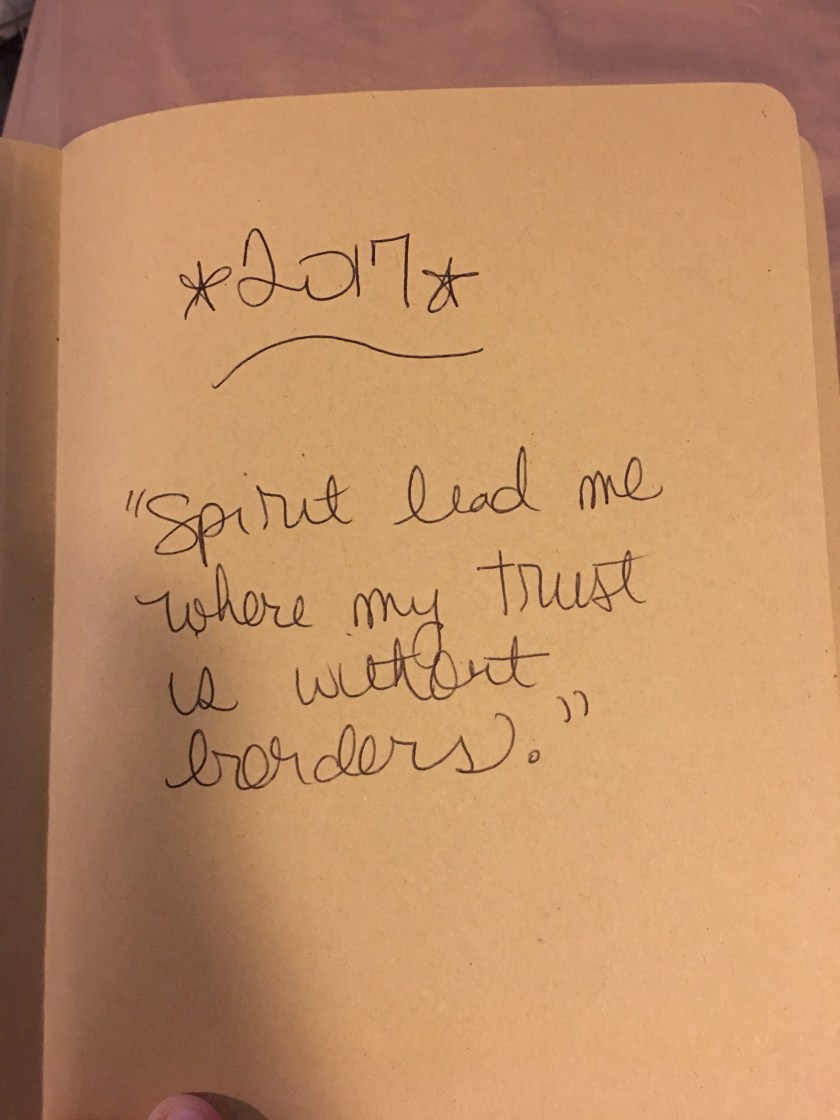 *2017*
"Spirit lead me
where my trust
is without
borders."